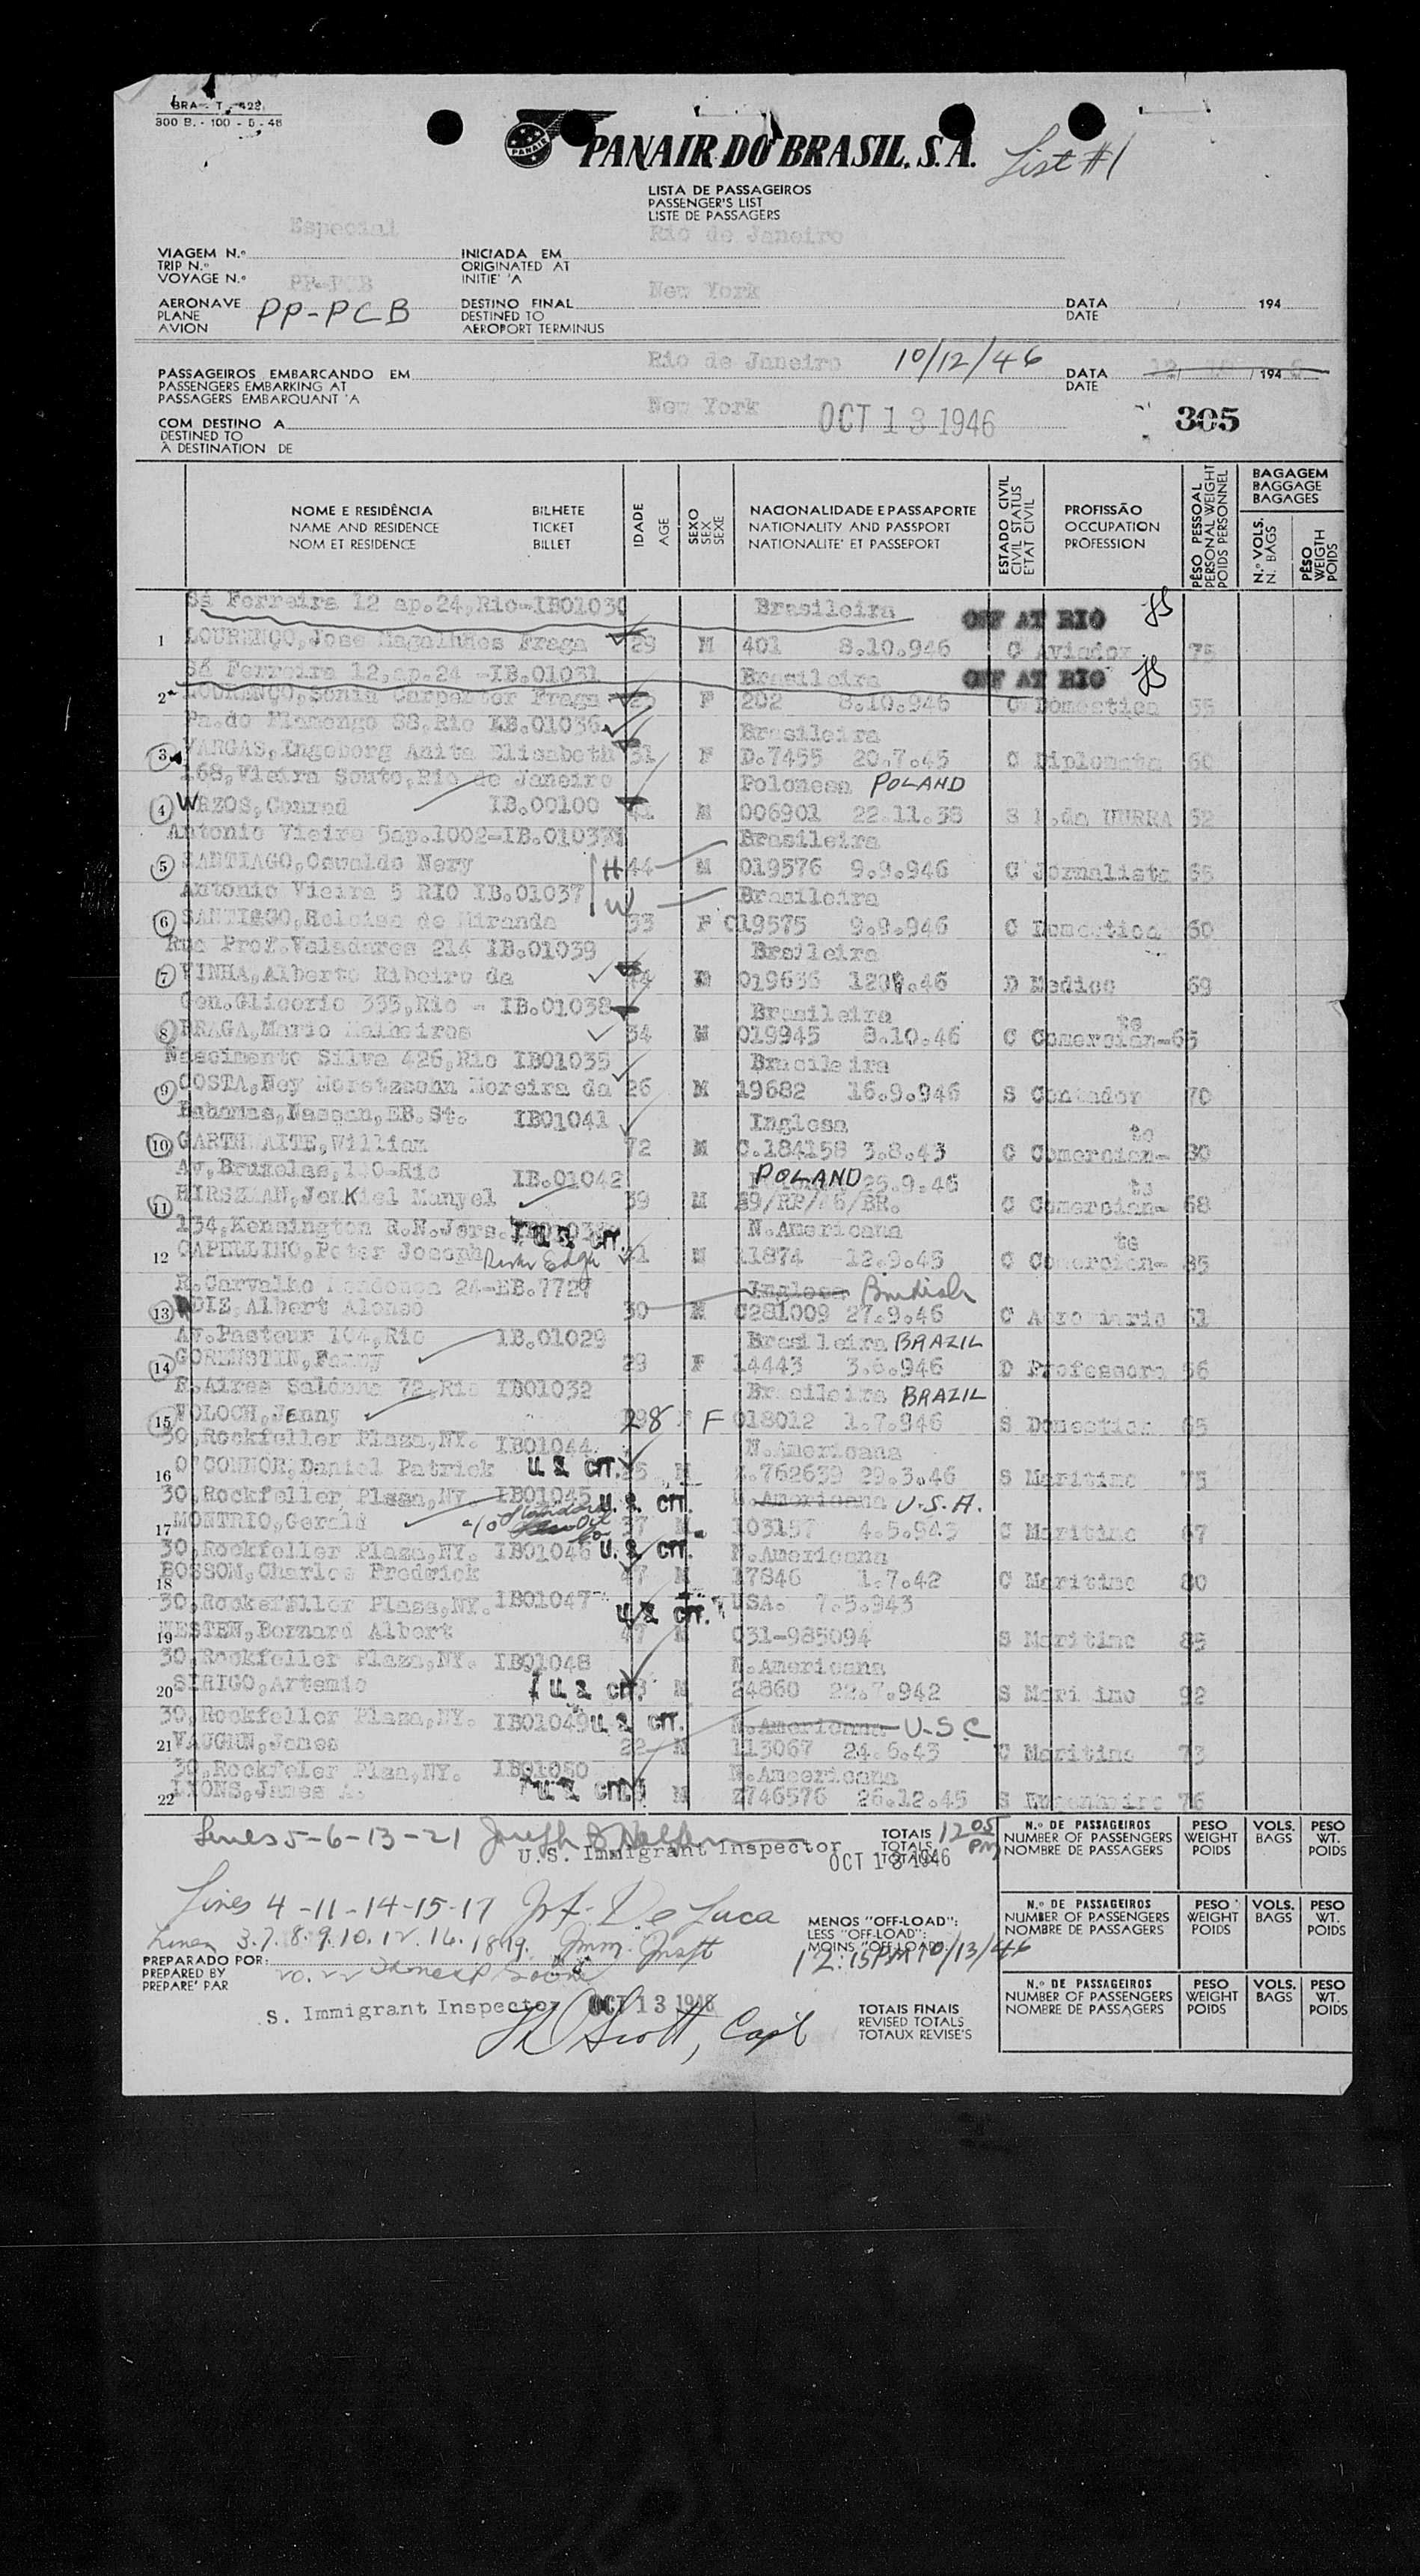 BRA - T - 422
300 B. - 100 - 5 - 46
PANAIR
PANAIR DO BRASIL, S.A.
List #1
LISTA DE PASSAGEIROS
PASSENGER'S LIST
LISTE DE PASSAGERS
Especial
Rio de Janeiro
VIAGEM N.º
TRIP N.º
VOYAGE N.º
INICIADA EM
ORIGINATED AT
INITIE' 'A
PP-PCB
New York
AERONAVE
PLANE
AVION
PP-PCB
DESTINO FINAL
DESTINED TO
AEROPORT TERMINUS
DATA
DATE
194
Rio de Janeiro 10/12/46
PASSAGEIROS EMBARCANDO EM
PASSENGERS EMBARKING AT
PASSAGERS EMBARQUANT 'A
DATA
DATE
12 194 6
New York OCT 13 1946
305
COM DESTINO A
DESTINED TO
A DESTINATION DE
NOME E RESIDÊNCIA
NAME AND RESIDENCE
NOM ET RESIDENCE
BILHETE
TICKET
BILLET
IDADE
AGE
SEXO
SEX
SEXE
NACIONALIDADE E PASSAPORTE
NATIONALITY AND PASSPORT
NATIONALITE' ET PASSEPORT
ESTADO CIVIL
CIVIL STATUS
ETAT CIVIL
PROFISSÃO
OCCUPATION
PROFESSION
PÊSO PESSOAL
PERSONAL WEIGHT
POIDS PERSONNEL
BAGAGEM
BAGGAGE
BAGAGES
N.º VOLS.
N. BAGS
PÊSO
WEIGTH
POIDS
Sá Ferreira 12 ap.24,Rio-IB01030 Brasileira OFF AT RIO
1 LOURENÇO,Jose Magalhães Fraga 29 M 401 8.10.946 C Aviador 75
Sá Ferreira 12,ap.24 -IB.01031 Brasileira OFF AT RIO
2 LOURENÇO,Sonia Carpenter Fraga F 202 8.10.946 C Domestica 55
Pa.do Flamengo 88,Rio IB.01036 Brasileira
3 VARGAS,Ingeborg Anita Elisabeth 31 F D.7455 20.7.45 C Diplomata 60
168,Vieira Souto,Rio de Janeiro Polonesa POLAND
4 WRZOS,Conrad IB.00100 41 M 006901 22.11.38 S F.da UNRRA 52
Antonio Vieira 5ap.1002-IB.01033 Brasileira
5 SANTIAGO,Oswaldo Nery H 44 M 019576 9.9.946 C Jornalista 65
Antonio Vieira 5 RIO IB.01037 W Brasileira
6 SANTIAGO,Heloisa de Miranda 33 F 019575 9.9.946 C Domestica 60
Rua Prof.Valadares 214 IB.01039 Brasileira
7 VINHA,Alberto Ribeiro da 44 M 019636 46 D Medico 69
Gen.Glicerio 335,Rio - IB.01038 Brasileira
8 BRAGA,Mario Malheiros 34 M 019945 8.10.46 C Comercian-te 65
Nascimento Silva 426,Rio IB01035 Brasileira
9 COSTA,Ney Moretzsohn Moreira da 26 M 19682 16.9.946 S Contador 70
Bahamas,Nassau,EB.St. IB01041 Inglesa
10 GARTHWAITE,William 72 M C.184158 3.8.43 C Comercian-te 80
Av,Bruxelas,140-Rio IB.01042 POLAND 25.9.46
11 HIRSZMAN,Jenkiel Manyel 39 M 29/RP/46/BR. C Comercian-te 68
134,Kensington R.N.Jers. U. S. CIT. N.Americana
12 CAPELLINO,Peter Joseph River Edge 41 M 11874 12.9.45 C Comercian-te 85
R.Carvalho Mendonça 24-EB.7727 Inglesa British
13 RUIZ,Albert Alonso 30 M C281009 27.9.46 C Aeroviario 61
Av.Pasteur 104,Rio IB.01029 Brasileira BRAZIL
14 GORENSTIN,Fanny 29 F 14443 3.6.946 D Professora 56
R.Aires Saldanha 72,Rio IB01032 Brasileira BRAZIL
15 VOLOCH,Jenny 28 F 018012 1.7.946 S Domestica 65
30,Rockfeller Plaza,NY. IB01044 N.Americana
16 O'CONNOR,Daniel Patrick U. S. CIT. 25 M Z.762639 29.3.46 S Maritimo 75
30,Rockfeller Plaza,NY IB01045 U. S. CIT. N.Americana U.S.A.
17 MONTRIO,Gerald c/o Standard Oil Co 37 M 103157 4.5.943 C Maritimo 67
30,Rockfeller Plaza,NY. IB01046 U. S. CIT. N.Americana
18 BOSSOM,Charles Fredrick 47 M 17846 1.7.42 C Maritimo 80
30,Rockefeller Plaza,NY. IB01047 U. S. CIT. USA. 7.5.943
19 WESTEN,Bernard Albert 47 M 031-985094 S Maritimo 85
30,Rockfeller Plaza,NY. IB01048 N.Americana
20 SIRIGO,Artemio U. S. CIT. M 24860 22.7.942 S Maritimo 92
30,Rockfeller Plaza,NY. IB01049 U. S. CIT. N.Americana U.S.C
21 VAUGHN,James 22 M 113067 24.6.43 C Maritimo 73
30,Rockfeler Plza,NY. IB01050 N.Ameericana
22 LYONS,James A. U. S. CIT. M Z746576 26.12.45 S Engenheiro 76
Lines 5-6-13-21 Joseph
U.S. Immigrant Inspector OCT 13 1946
TOTAIS
TOTALS
TOTAUX
12 05 PM
N.º DE PASSAGEIROS
NUMBER OF PASSENGERS
NOMBRE DE PASSAGERS
PESO
WEIGHT
POIDS
VOLS.
BAGS
PESO
WT.
POIDS
Lines 4-11-14-15-17 De Luca
Lines 3.7.8.9.10.12.16.18.19.
20.22
MENOS "OFF-LOAD":
LESS "OFF-LOAD":
MOINS "OFF-LOAD":
12:15PM 10/13/46
N.º DE PASSAGEIROS
NUMBER OF PASSENGERS
NOMBRE DE PASSAGERS
PESO
WEIGHT
POIDS
VOLS.
BAGS
PESO
WT.
POIDS
PREPARADO POR:
PREPARED BY
PREPARE' PAR
S. Immigrant Inspector OCT 13 1946
Scott, Capt
TOTAIS FINAIS
REVISED TOTALS
TOTAUX REVISE'S
N.º DE PASSAGEIROS
NUMBER OF PASSENGERS
NOMBRE DE PASSAGERS
PESO
WEIGHT
POIDS
VOLS.
BAGS
PESO
WT.
POIDS